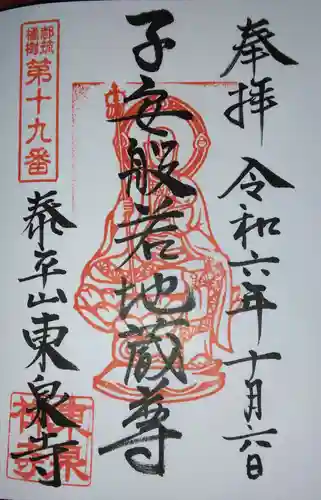 奉拝
令和六年十月六日
子安般若地蔵尊
都筑橘樹
第十九番
泰平山東泉寺